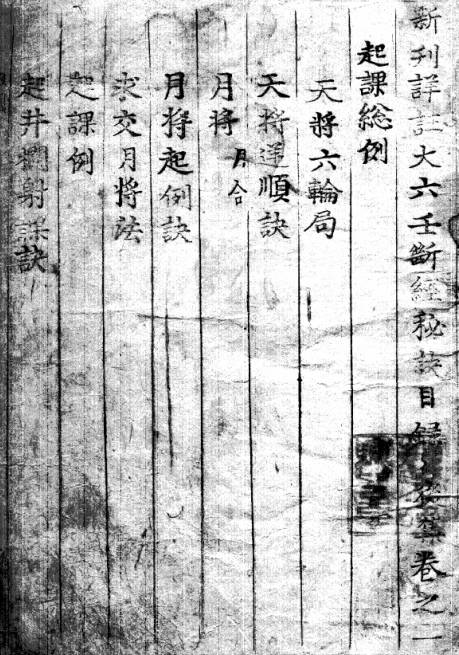 新刊詳註大六壬斷經秘訣目錄卷之一
起課総例
天將六輪局
天將逆順訣
月將 月合
月將起例訣
求交月將法
起課例
起井欄射課訣